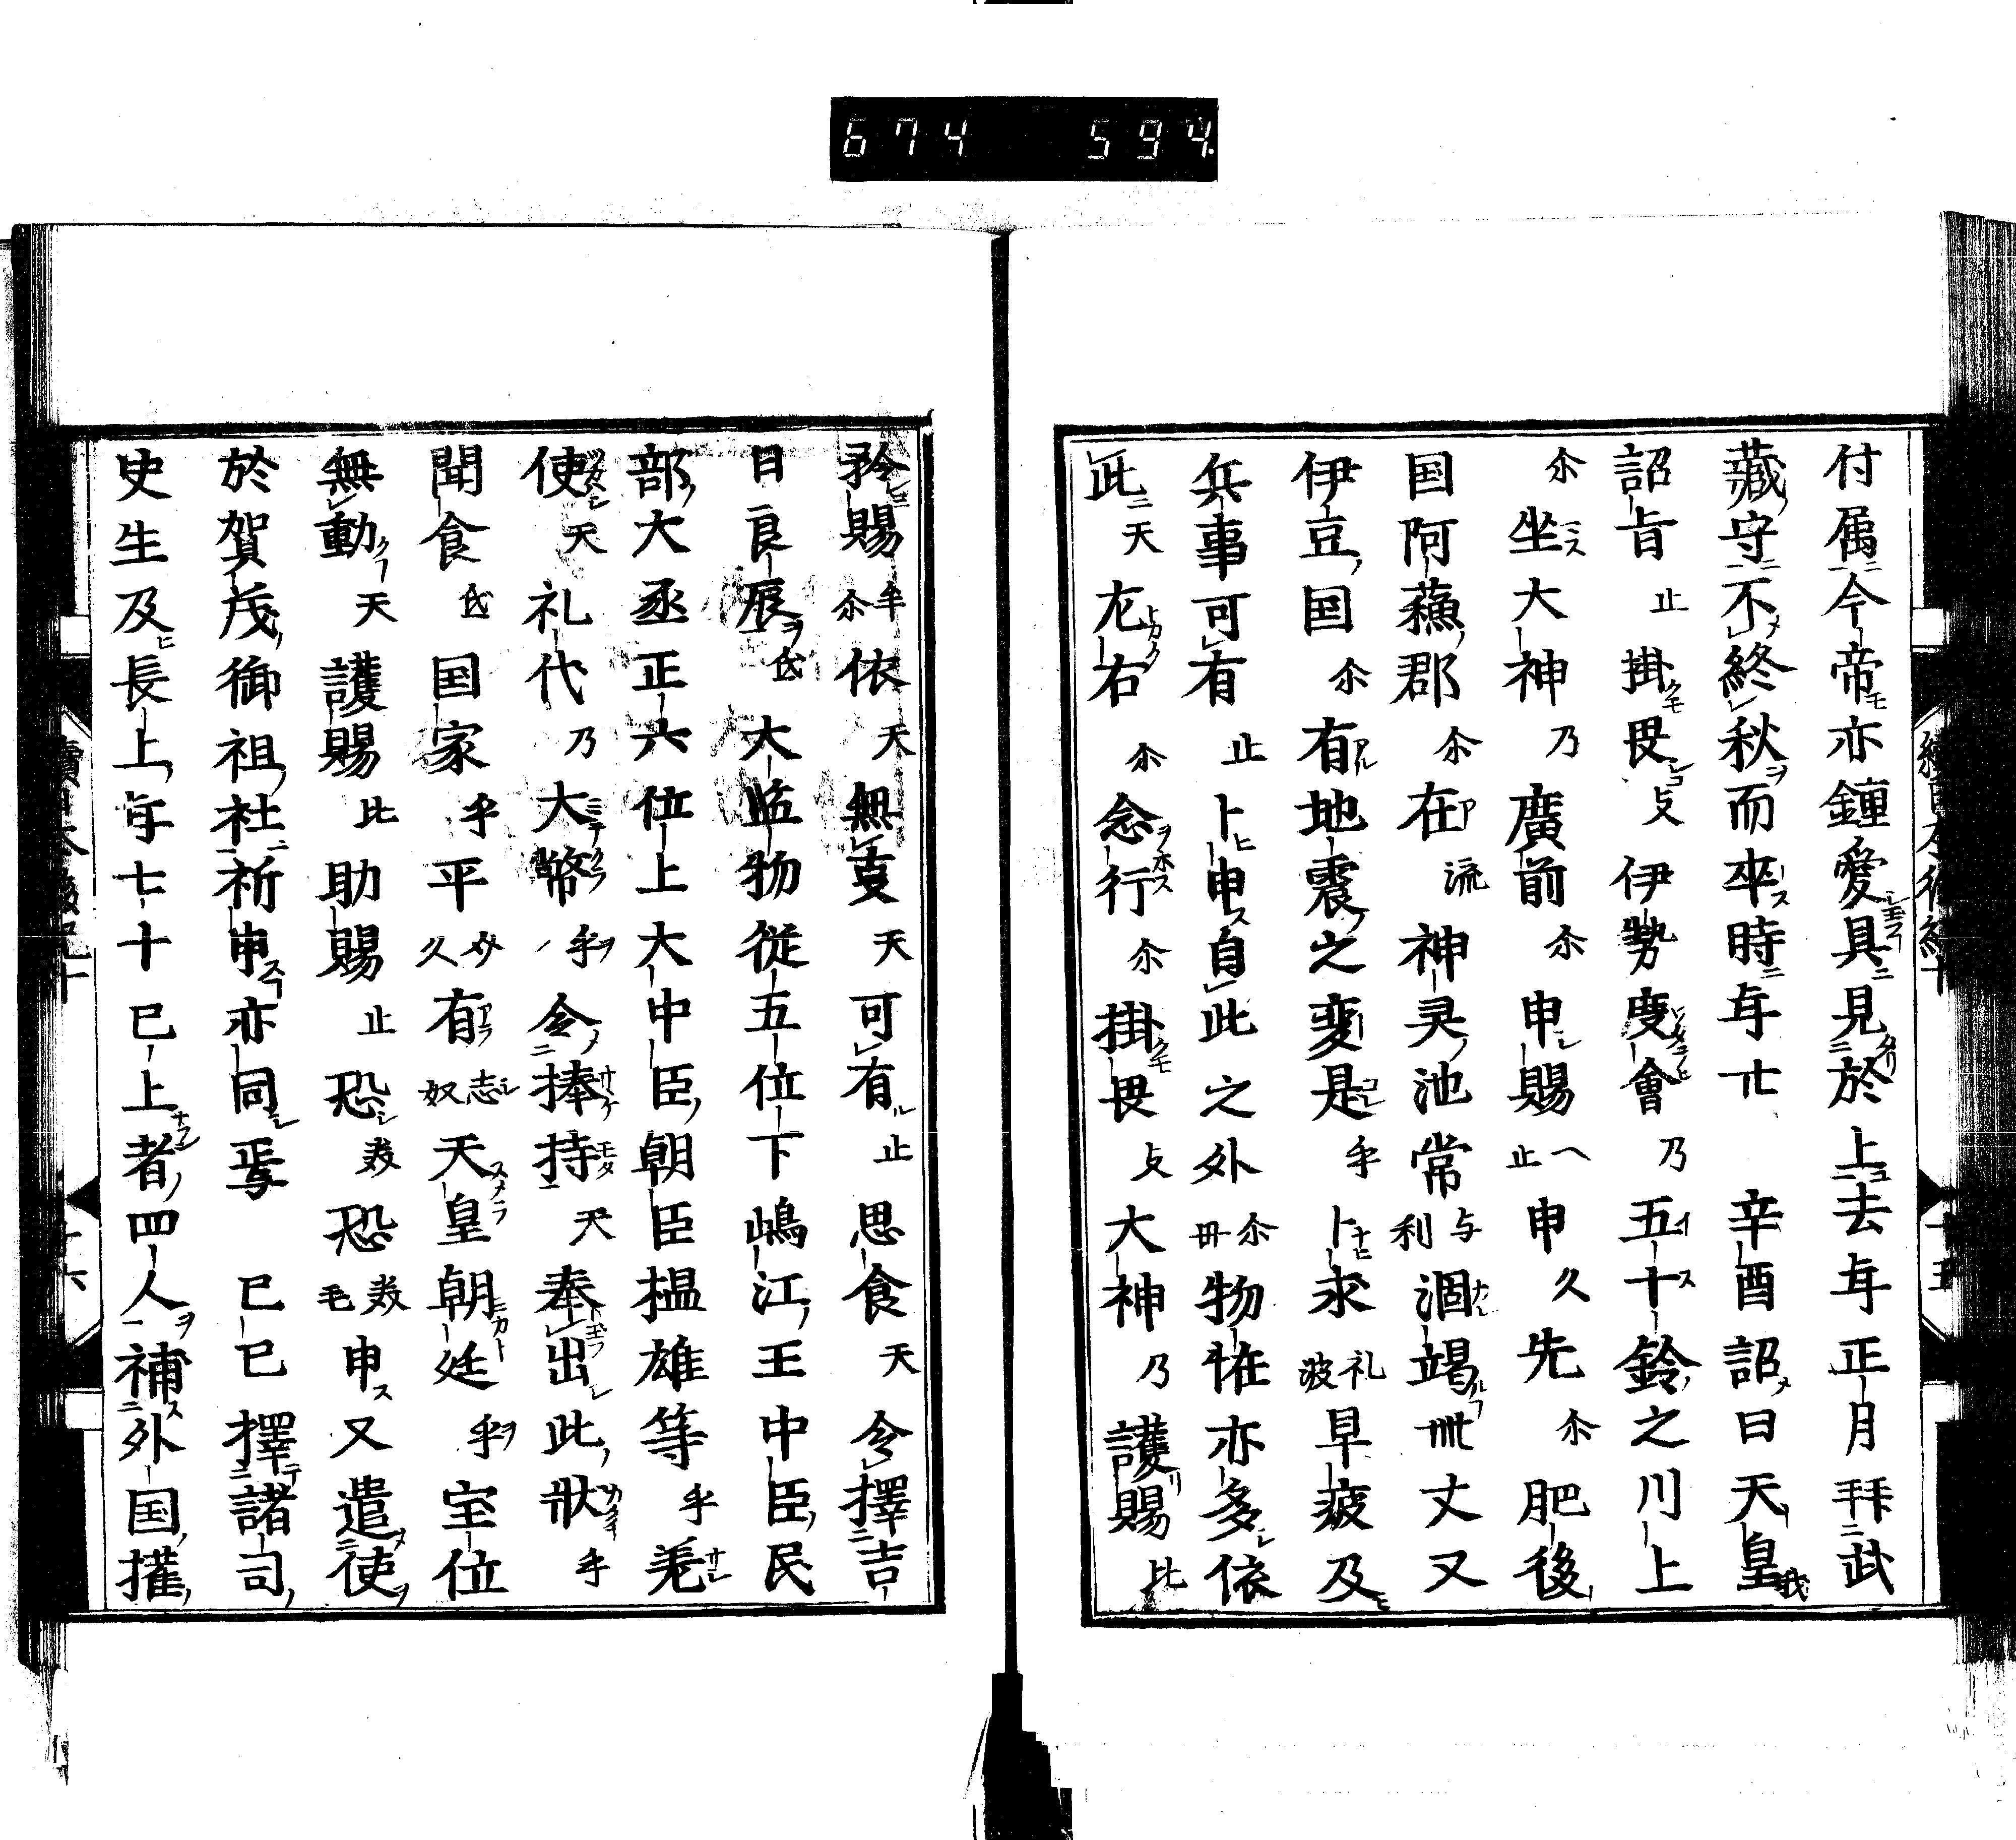 674 594.
付属今帝亦鍾愛具見於上去年正月拜武
藏守不終秋而卒時年廿 辛酉詔曰天皇我
詔旨止掛畏攴伊勢度會乃五十鈴之川上
尒坐大神乃廣前尒申賜止申久先尒肥後
国阿蘓郡尒在流神灵池常与利涸竭卌丈又
伊豆国尒有地震之変是乎卜求礼波早疲及
兵事可有止卜申自此之外尒毌物恠亦多依
此天左右尒念行尒掛畏攴大神乃護賜比
矜賜牟尒依天無㕝天可有止思食天令擇吉
日良辰氐大監物從五位下嶋江王中臣民
部大丞正六位上大中臣朝臣揾雄等乎差
使天礼代乃大幣乎令捧持天奉出此狀乎
聞食氐国家乎平久有志奴天皇朝廷乎宝位
無動天護賜比助賜止恐美恐美毛申又遣使
於賀茂御祖社祈申亦同焉 己巳擇諸司
史生及長上年七十已上者四人補外国擢